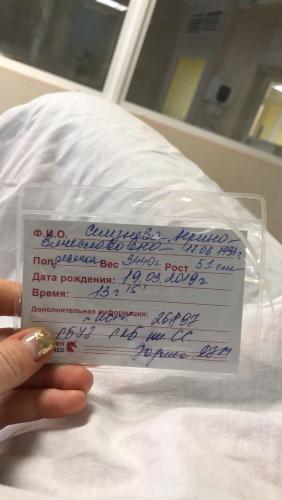 Ф.И.О. Селезнева Арина
Вячеславовна 12.08.1993г
Пол девочка Вес 3440г Рост 51 см
Дата рождения: 19.03.2019г
Время: 13 ч 15
Дополнительная информация:
г. Москва 26897
ГБУЗ ГКБ им. С.С.
Юдина ДЗМ